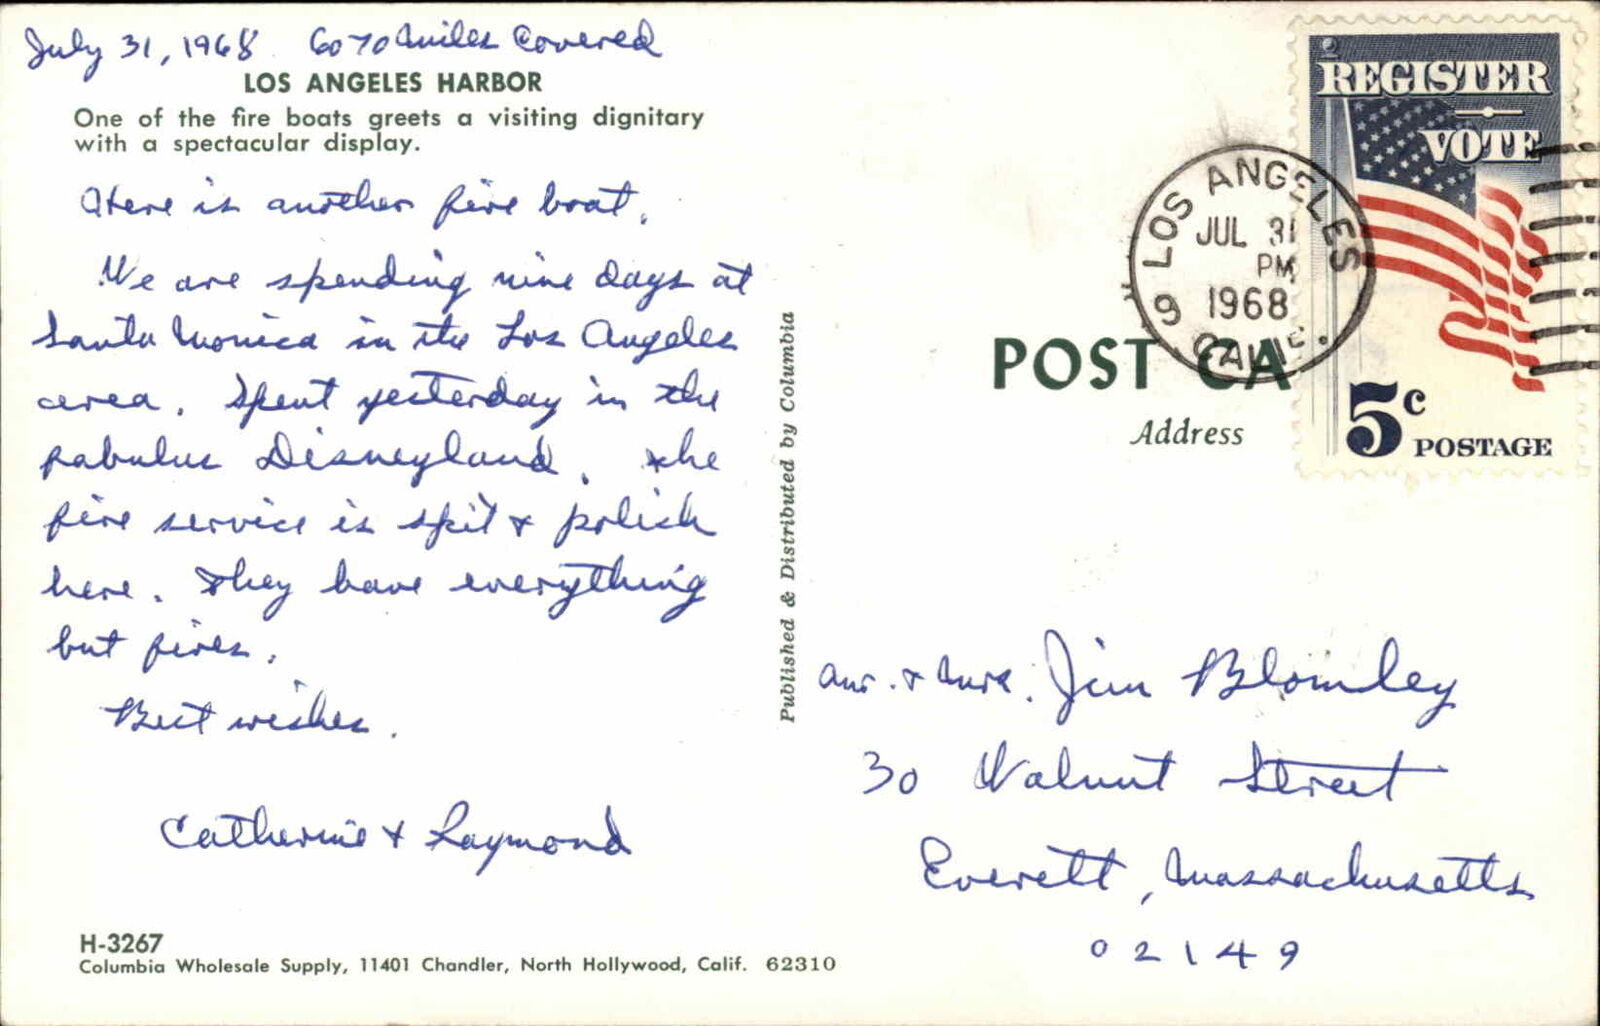 July 31, 1968 6070 Miles Covered
LOS ANGELES HARBOR
One of the fire boats greets a visiting dignitary
with a spectacular display.
Here is another fire boat.
We are spending nine days at
Santa Monica in the Los Angeles
area. Spent yesterday in the
fabulus Disneyland. The
fire service is spit & polish
here. They have everything
but fires.
Best wishes.
Catherine & Raymond
H-3267
Columbia Wholesale Supply, 11401 Chandler, North Hollywood, Calif. 62310
Published & Distributed by Columbia
POST CA
Address
LOS ANGELES
JUL 31
PM
1968
CALIF.
9
REGISTER
VOTE
5c POSTAGE
Mr. & Mrs. Jim Blomley
30 Walnut Street
Everett, Massachusetts
02149